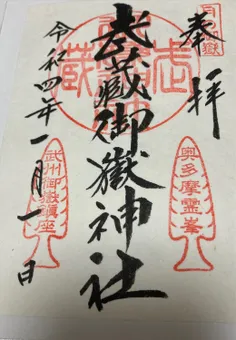 奉拝
武蔵御嶽神社
令和四年一月一日
奥多摩霊峯
武州御嶽鎮座